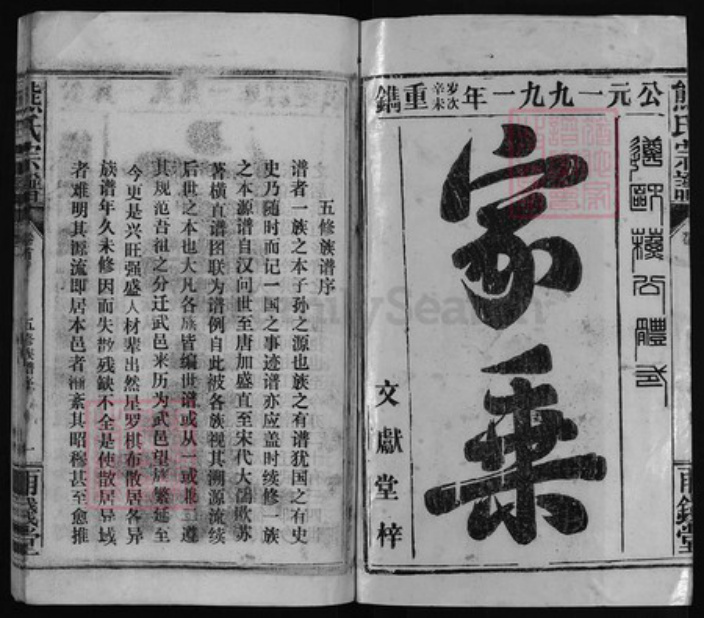 熊氏宗譜
公元一九九一年岁次辛未重鐫
遵歐蘇公體式
家乘
文獻堂梓
五修族谱序
谱者一族之本子孙之源也族之有谱犹国之有史
史乃随时而记一国之事迹谱亦应盖时续修一族
之本源谱自汉问世至唐加盛直至宋代大儒欧苏
著横直谱图联为谱例自此被各族视其溯源流续
后世之本也大凡各族皆编世谱或从一或兼二遵
其规范吾祖之分迁武邑来历为武邑望族繁延至
今更是兴旺强盛人材辈出然星罗棋布散居各异
族谱年久未修因而失散残缺不全是使散居异域
者难明其源流即居本邑者渐紊其昭穆甚至愈推
熊氏宗譜
五修族谱序
一
FamilySearch